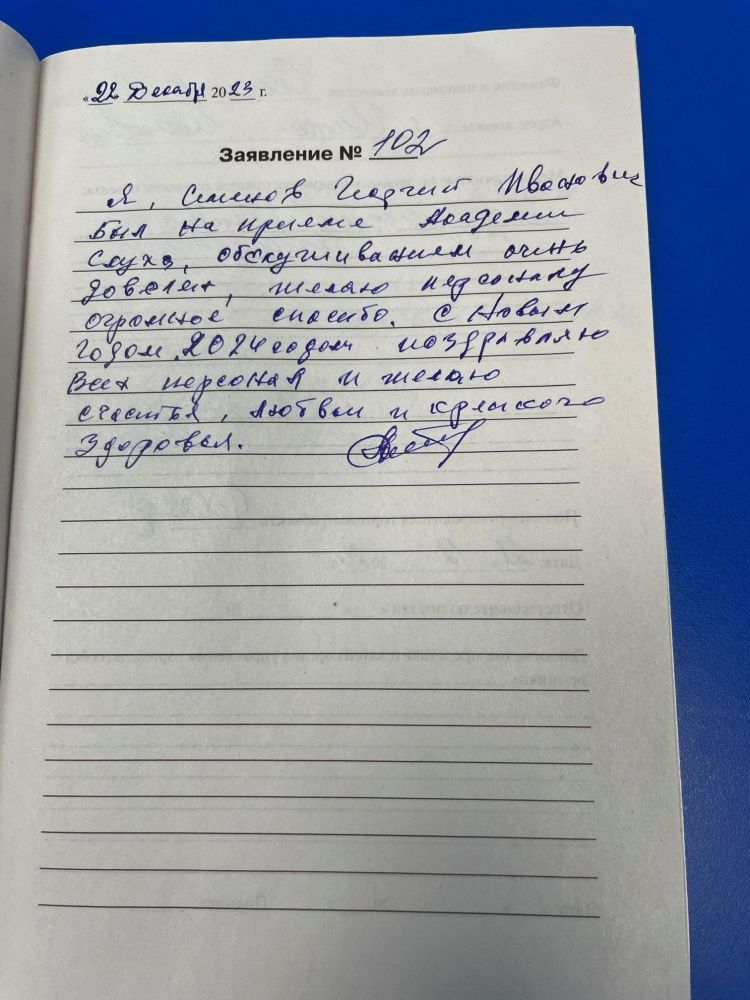 «22» Декабря 2023 г.
Заявление № 102
Я, Семенов Георгий Иванович
был на приеме Академии
Слуха, обслуживанием очень
доволен, желаю персоналу
огромное спасибо. С Новым
годом, 2024 годом поздравляю
Всех персонал и желаю
счастья, любви и крепкого
Здоровья.